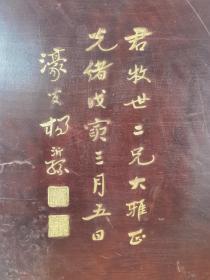 君牧世二兄大雅正
光绪戊寅三月五日
濠叟杨沂孙